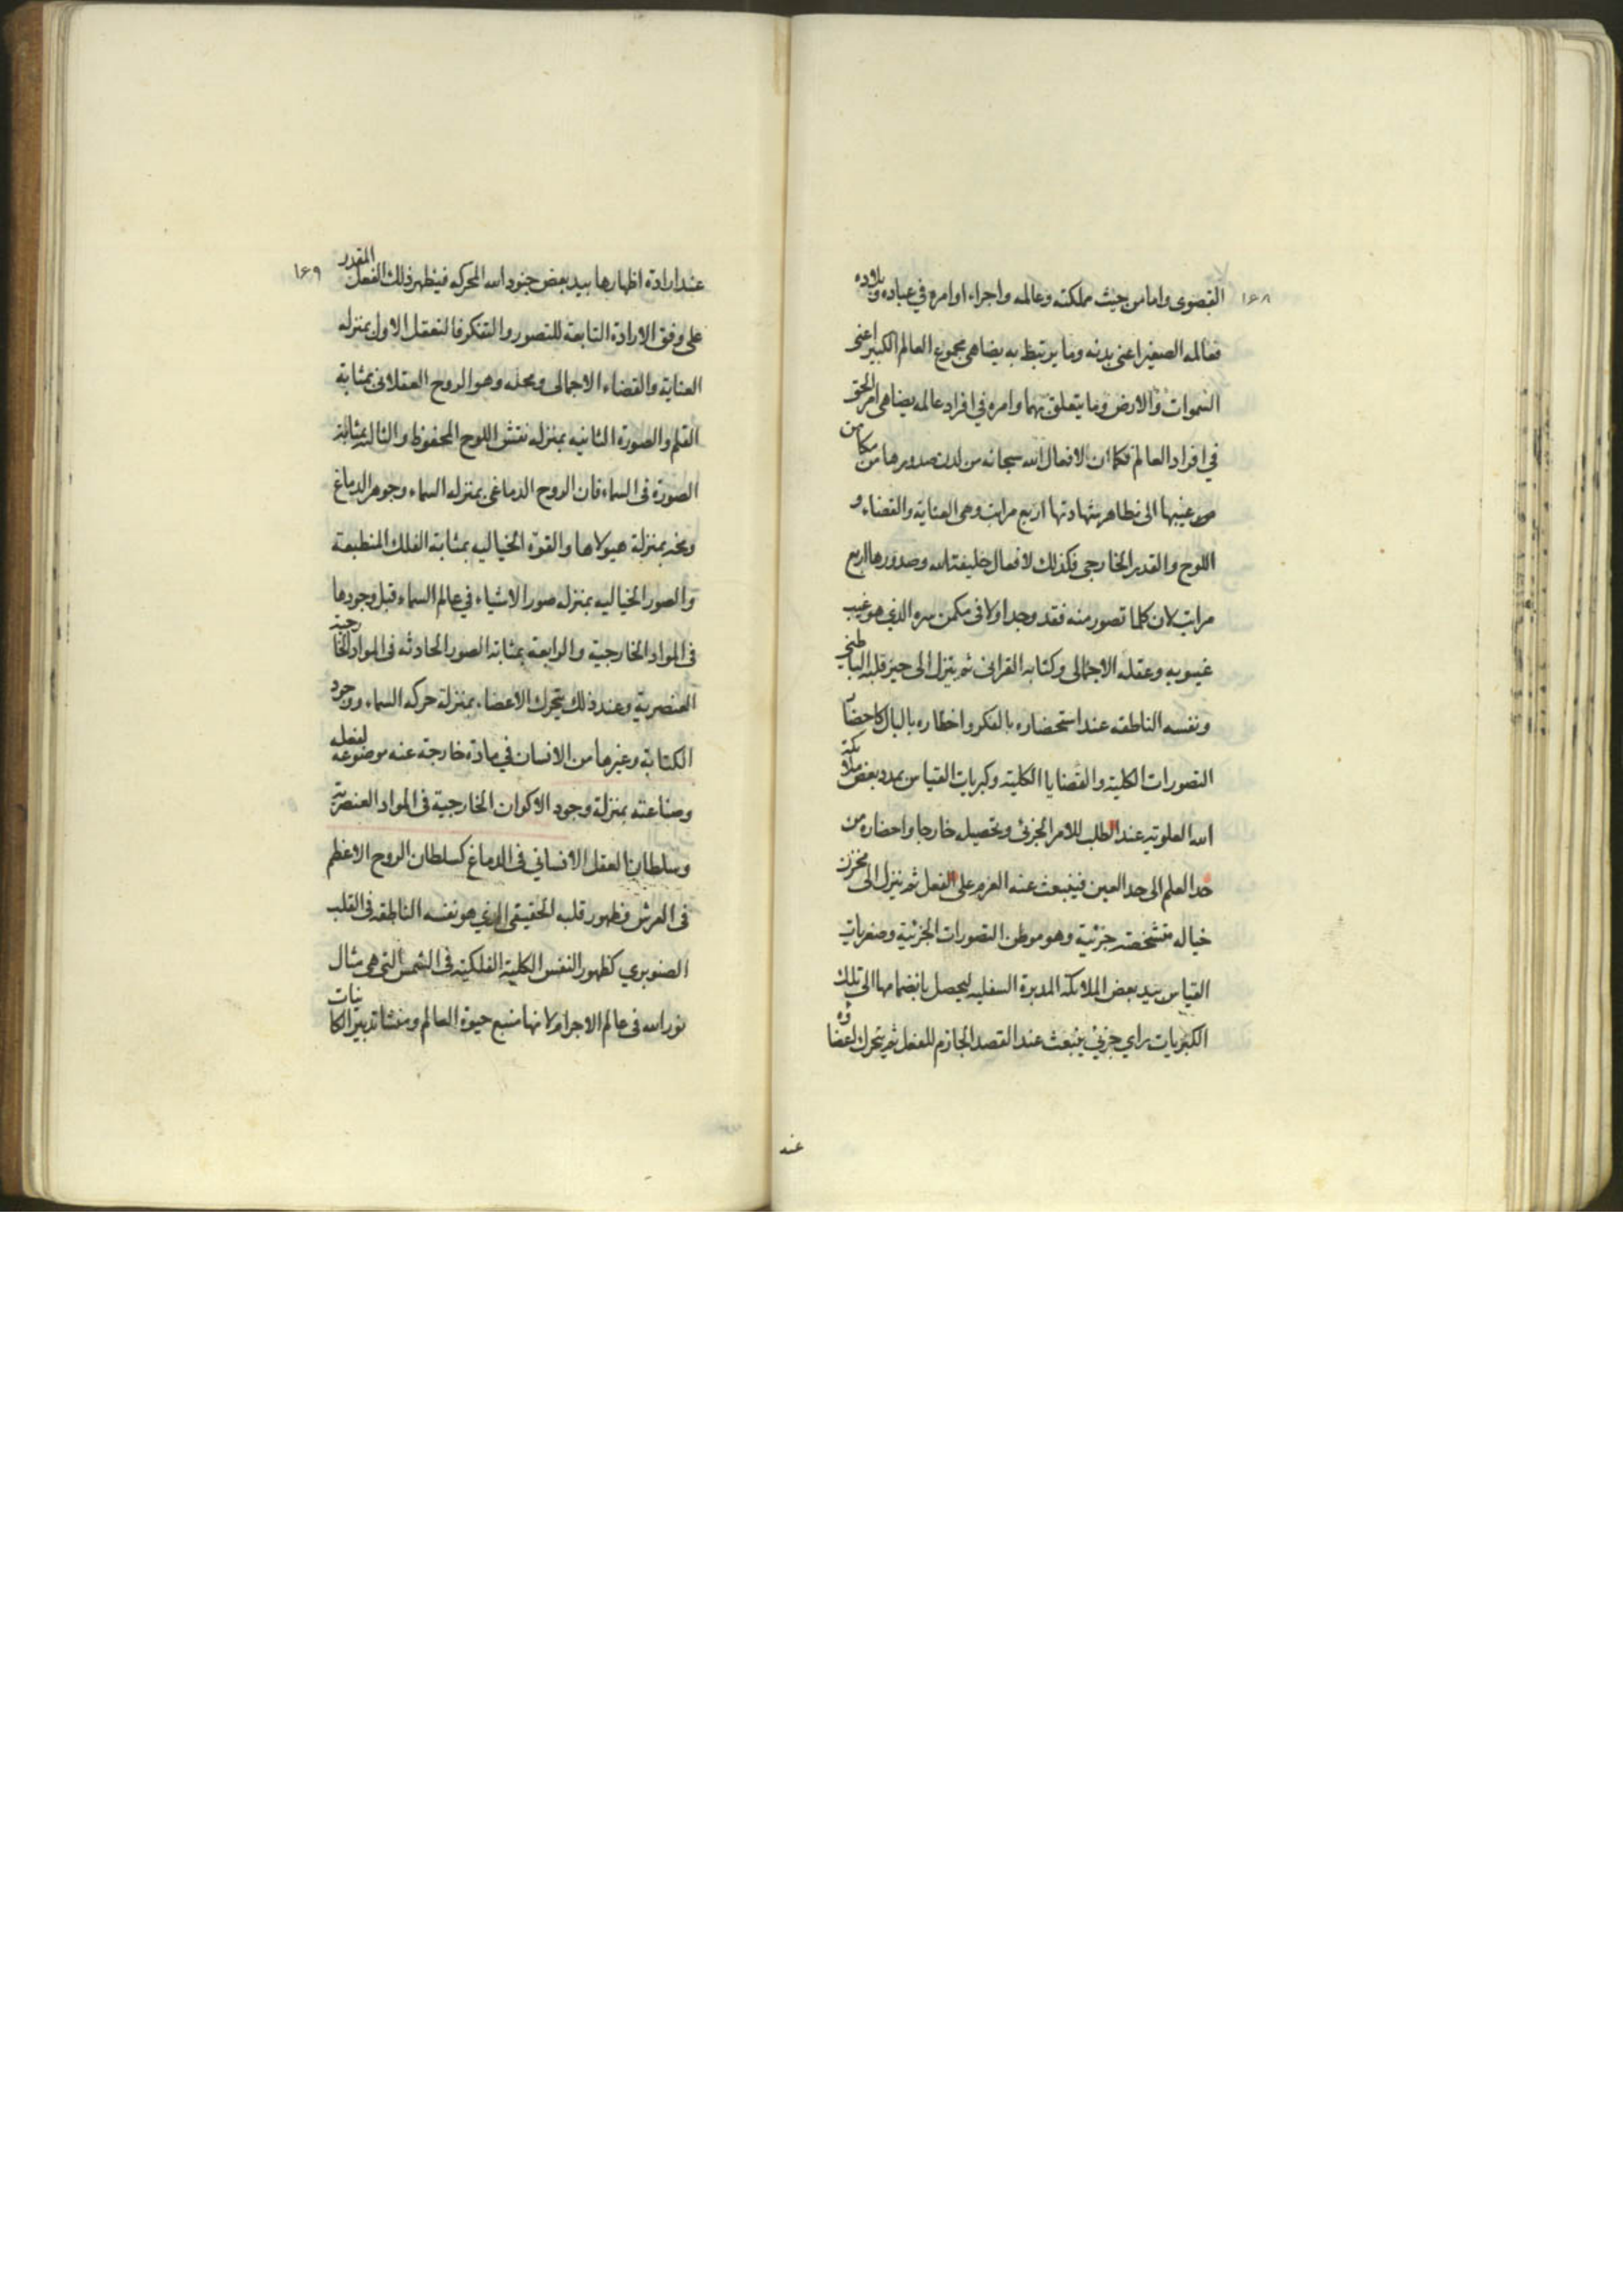 ١٦٨
القصوى واما من حيث مملكته وعالمه واجراء اوامره في عباده وبلاده
فعالمه الصغير اعنى بدنه وما يرتبط به يضاهى مجموع العالم الكبير اعنى
السموات والارض وما يتعلق بهما وامره في افراد عالمه يضاهى امر الحق
في افراد العالم فكما ان لافعال الله سبحانه من لدن صدورها من مكامن
غيبها الى مظاهر شهادتها اربع مراتب وهى العناية والقضاء و
اللوح والقدر الخارجى فكذلك لافعال خليفة الله وصدورها اربع
مراتب لان كلما تصور منه فقد وجد اولا فى مكمن سره الذي هو غيب
غيوبه وعقله الاجمالى وكتابه القرانى ثم يتنزل الى حيز قلبه الباطنى
ونفسه الناطقه عند استحضاره بالفكر واخطاره بالبال كاحضار
التصورات الكلية والقضايا الكلية وكبريات القياس بمدد بعض ملائكة
الله العلوية عند الطلب للامر الجزئى وتحصيل خارجا واحضاره من
حد العلم الى حد العين فينبعث عنه العزم على الفعل ثم ينزل الى مخزن
خياله متشخصة جزئية وهو موطن التصورات الجزئية وصغريات
القياس بيد بعض الملائكة المدبرة السفليه ليحصل بانضمامها الى تلك
الكبريات راي جزئي ينبعث عند القصد الجازم للفعل ثم يتحرك اعضاؤه
عند
١٦٩
عند ارادة اظهارها بيد بعض جنود الله المحركه فيظهر ذلك الفعل المقدر
على وفق الارادة التابعة للتصور والتفكر فالتعقل الاول بمنزله
العناية والقضاء الاجمالى ومحله وهو الروح العقلانى بمثابة
القلم والصورة الثانيه بمنزله نقش اللوح المحفوظ والثالثه بمثابة
الصورة فى السماء فان الروح الدماغى بمنزله السماء وجوهر الدماغ
ومخه بمنزلة هيولاها والقوة الخياليه بمثابة الفلك المنطبعة
والصور الخياليه بمنزله صور الاشياء في عالم السماء قبل وجودها
فى المواد الخارجية والرابعة بمثابة الصور الحادثه فى المواد الخارجية
العنصرية وعند ذلك يتحرك الاعضاء بمنزلة حركه السماء ووجود
الكتابة وغيرها من الانسان في مادة خارجة عنه موضوعه لفعله
وصناعته بمنزلة وجود الاكوان الخارجية فى المواد العنصرية
وسلطان العقل الانسانى فى الدماغ كسلطان الروح الاعظم
فى العرش وظهور قلبه الحقيقى الذي هو نفسه الناطقه فى القلب
الصنوبري كظهور النفس الكلية الفلكية فى الشمس التى هى مثال
نور الله فى عالم الاجرام لانها منبع حيوة العالم ومنشا تدبير الكاينات